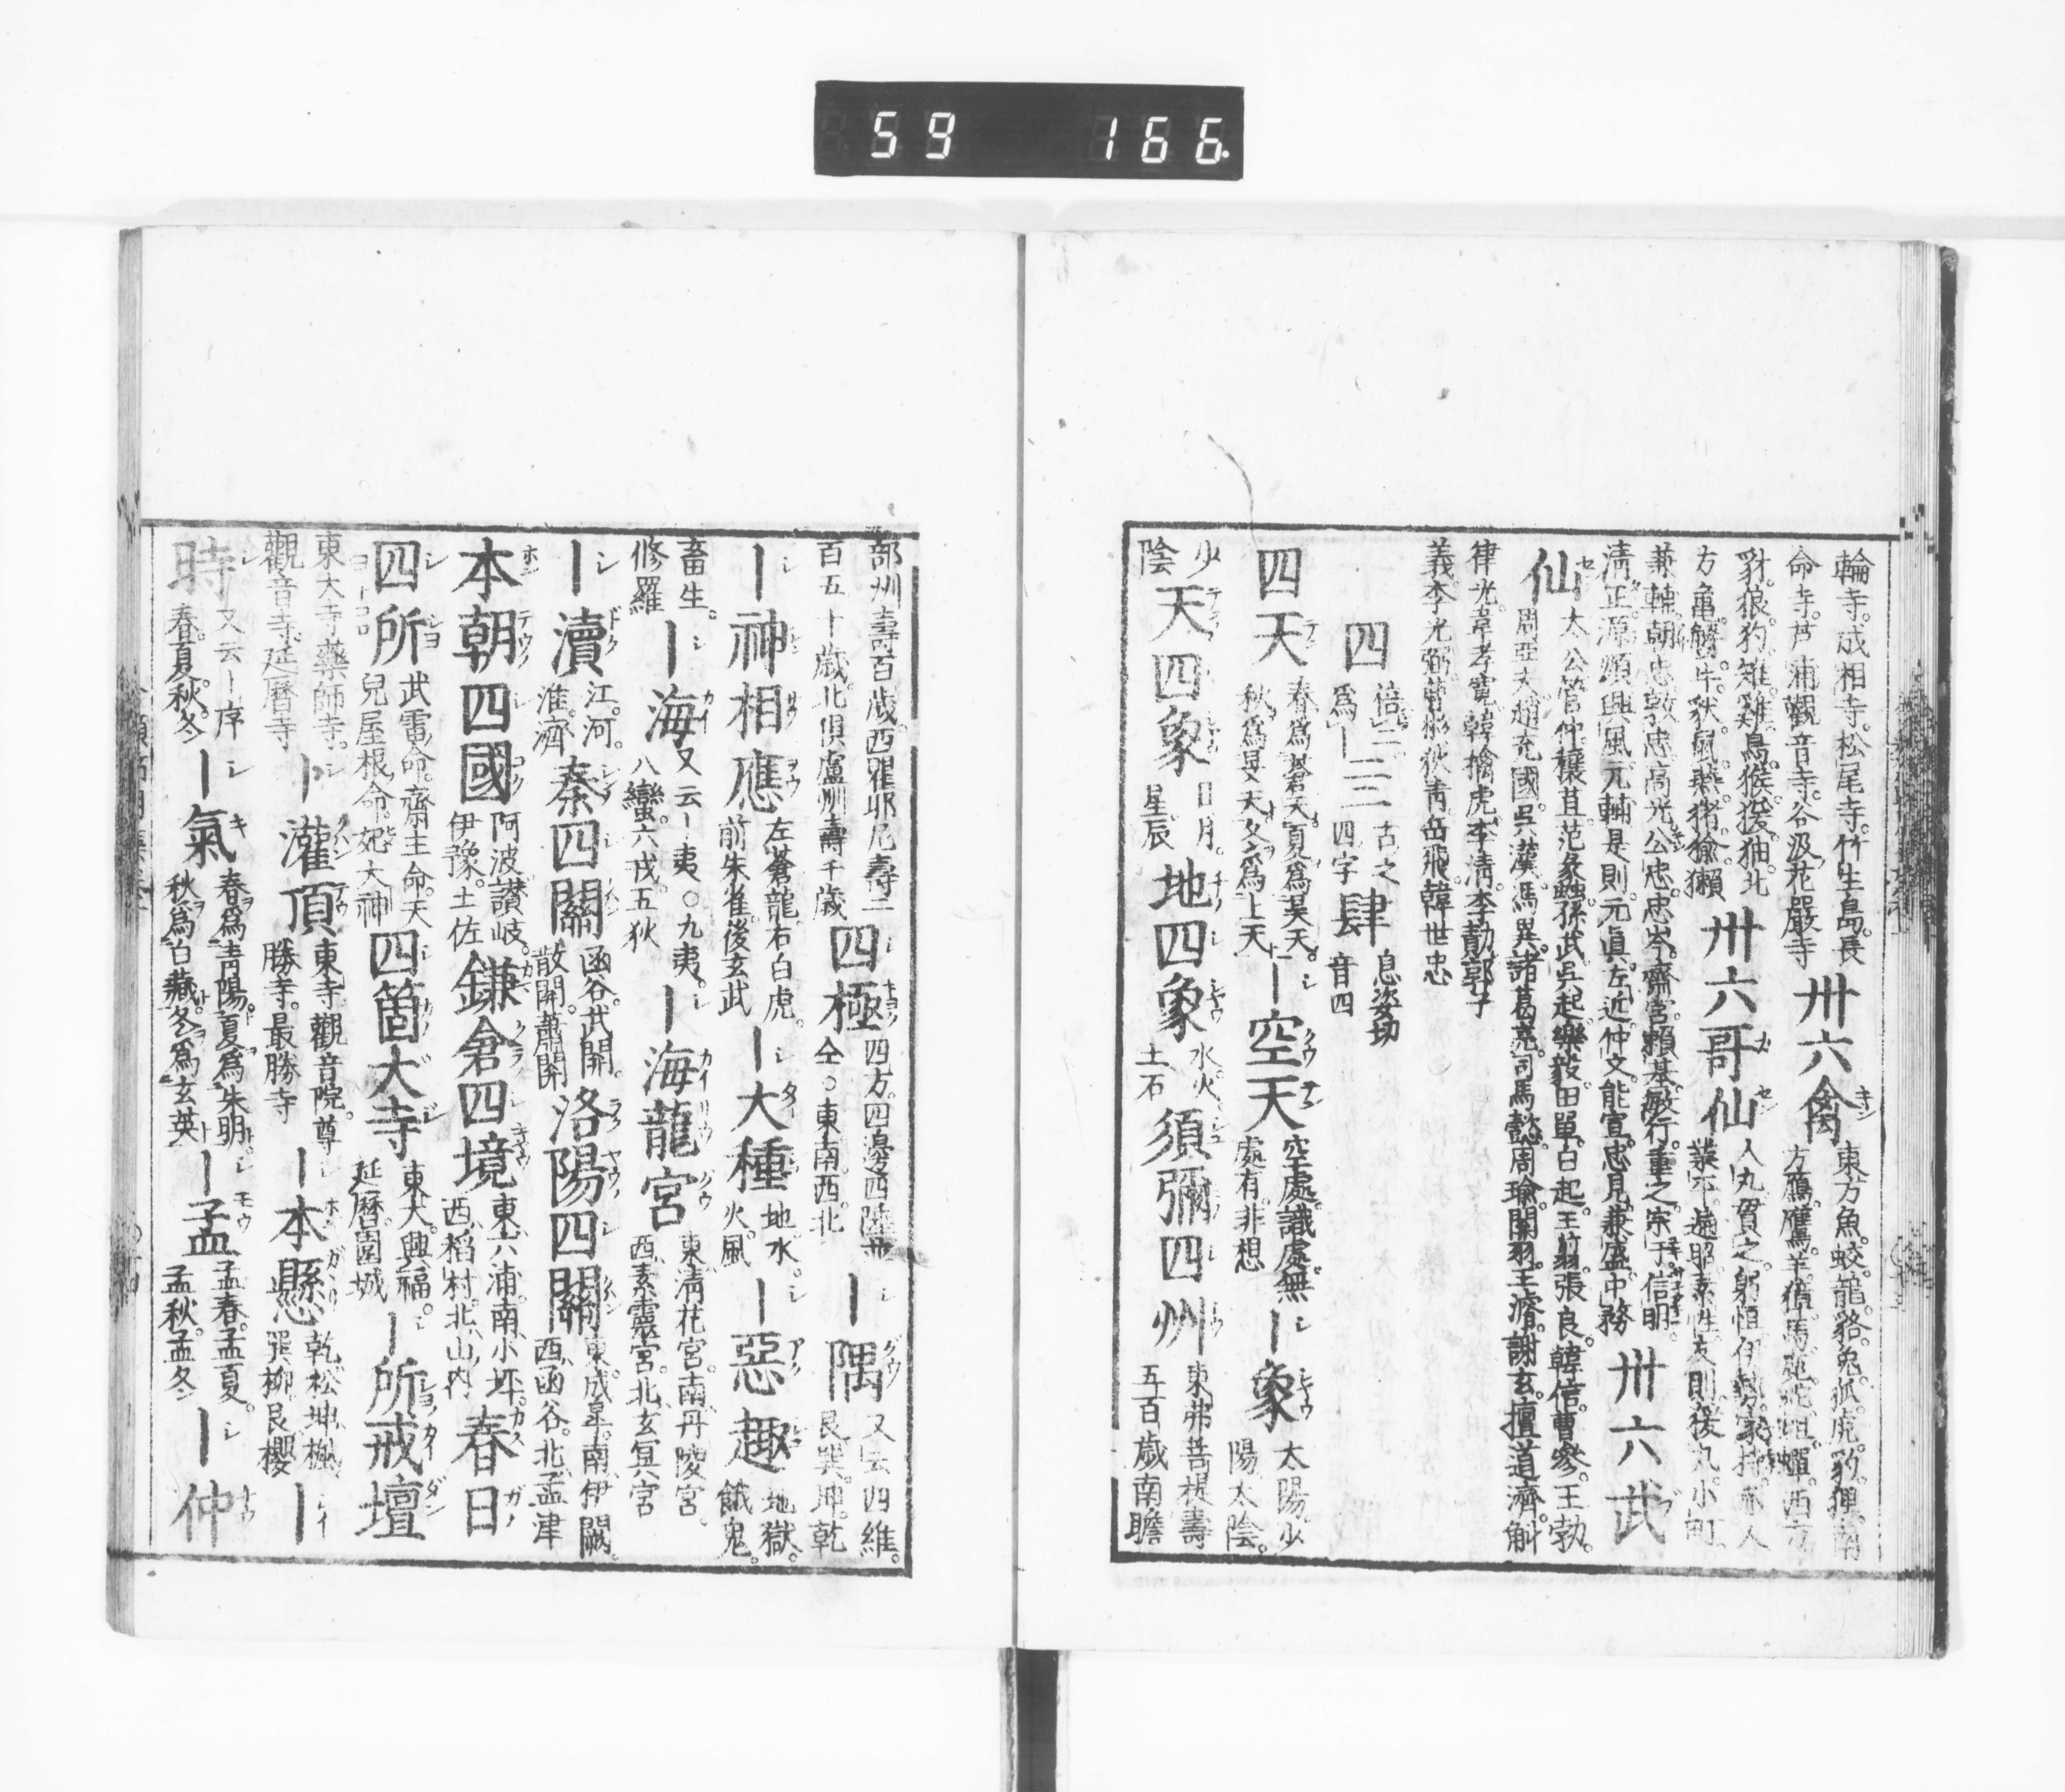 59 166
輪寺。成相寺。松尾寺。竹生島。長
命寺。芦浦觀音寺。谷汲花嚴寺
卅六禽
東方魚。蛟。龍。貉。兎。狐。虎。豹。狸。南
方
豺。狼。狗。雉。雞。烏。猴。猨。狖。北
方龜。蟹。牛。鼠。燕。猪。㺄。獺
卅六哥仙
人丸。貫之。躬恒。伊勢。家持。赤人
業平。遍昭。素性。友則。猿丸。小町。
兼輔。朝忠。敦忠。高光。公忠。忠岑。齋宮。頼基。敏行。重之。宗于。信明。
淸正。源順。興風。元輔。是則。元眞。左近。仲文。能宣。忠見。兼盛。中務
卅六武
仙
太公。管仲。穰苴。范蠡。孫武。呉起。樂毅。田單。白起。王翦。張良。韓信。曹參。王勃。
周亞夫。趙充國。呉漢。馮異。諸葛亮。司馬懿。周瑜。關羽。王濬。謝玄。檀道濟。斛
律光。韋孝寬。韓擒虎。李淸。李勣。郭子
義。李光弼。曹彬。狄靑。岳飛。韓世忠
四
倍二
爲｜
亖
古之
四字
肆
息姿切
音四
四天
春爲蒼天。夏爲昊天。
秋爲旻天。冬爲上天
｜空天
空處。識處。無
處有。非想
｜象
太陽。少
陽。太陰。
少
陰
天四象
日月。
星辰
地四象
水火。
土石
須彌四州
東弗菩提壽
五百歲南瞻
部州壽百歲。西瞿耶尼壽二
百五十歲。北俱盧州壽千歲
四極
四方。四邊。四陲
仝○東南。西。北
｜隅
又云四維。
艮巽。坤。乾
｜神相應
左蒼龍。右白虎。
前朱雀。後玄武
｜大種
地水。
火風
｜惡趣
地獄。
餓鬼。
畜生。
修羅
｜海
又云｜夷○九夷。
八蠻。六戎。五狄
｜海龍宮
東淸花宮。南丹陵宮。
西素靈宮。北玄冥宮
｜瀆
江。河。
淮。濟
秦四關
函谷。武關。
散關。蕭關
洛陽四關
東成皐。南伊闕。
西函谷。北孟津
本朝四國
阿波。讃岐。
伊豫。土佐
鎌倉四境
東六浦。南小坪。
西稻村。北山内
春日
四所
武雷命。齋主命。天
兒屋根命。妃大神
四箇大寺
東大。興福。
延曆。園城
｜所戒壇
東大寺。藥師寺。
觀音寺。延曆寺
｜灌頂
東寺。觀音院。尊
勝寺。最勝寺
｜本懸
乾松。坤楓。
巽柳。艮櫻
｜
時
又云｜序
春。夏。秋。冬
｜氣
春爲靑陽。夏爲朱明。
秋爲白藏。冬爲玄英
｜孟
孟春。孟夏。
孟秋。孟冬
｜仲